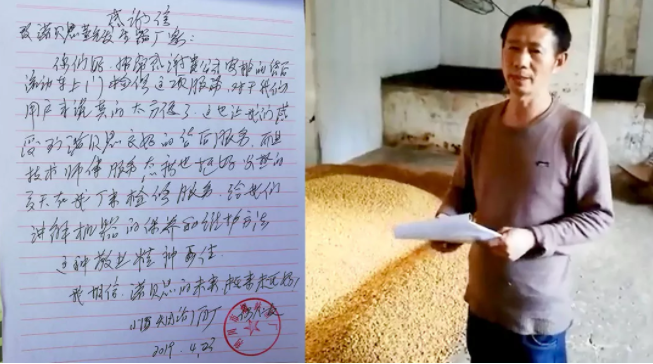 感谢信
致诺贝思蒸汽发生器厂家:
你们好 很感谢贵公司安排的售后
流动车上门检修这项服务,对于我们
用户来说真的太方便了,这也让我们感
受到诺贝思良好的售后服务,而且
技术师傅服务态度也挺好
天在我厂来检修服务,给我们
讲解机器的保养和维护方法
这种敬业精神可佳
我相信,诺贝思的未来,越来越好,
2019.4.23